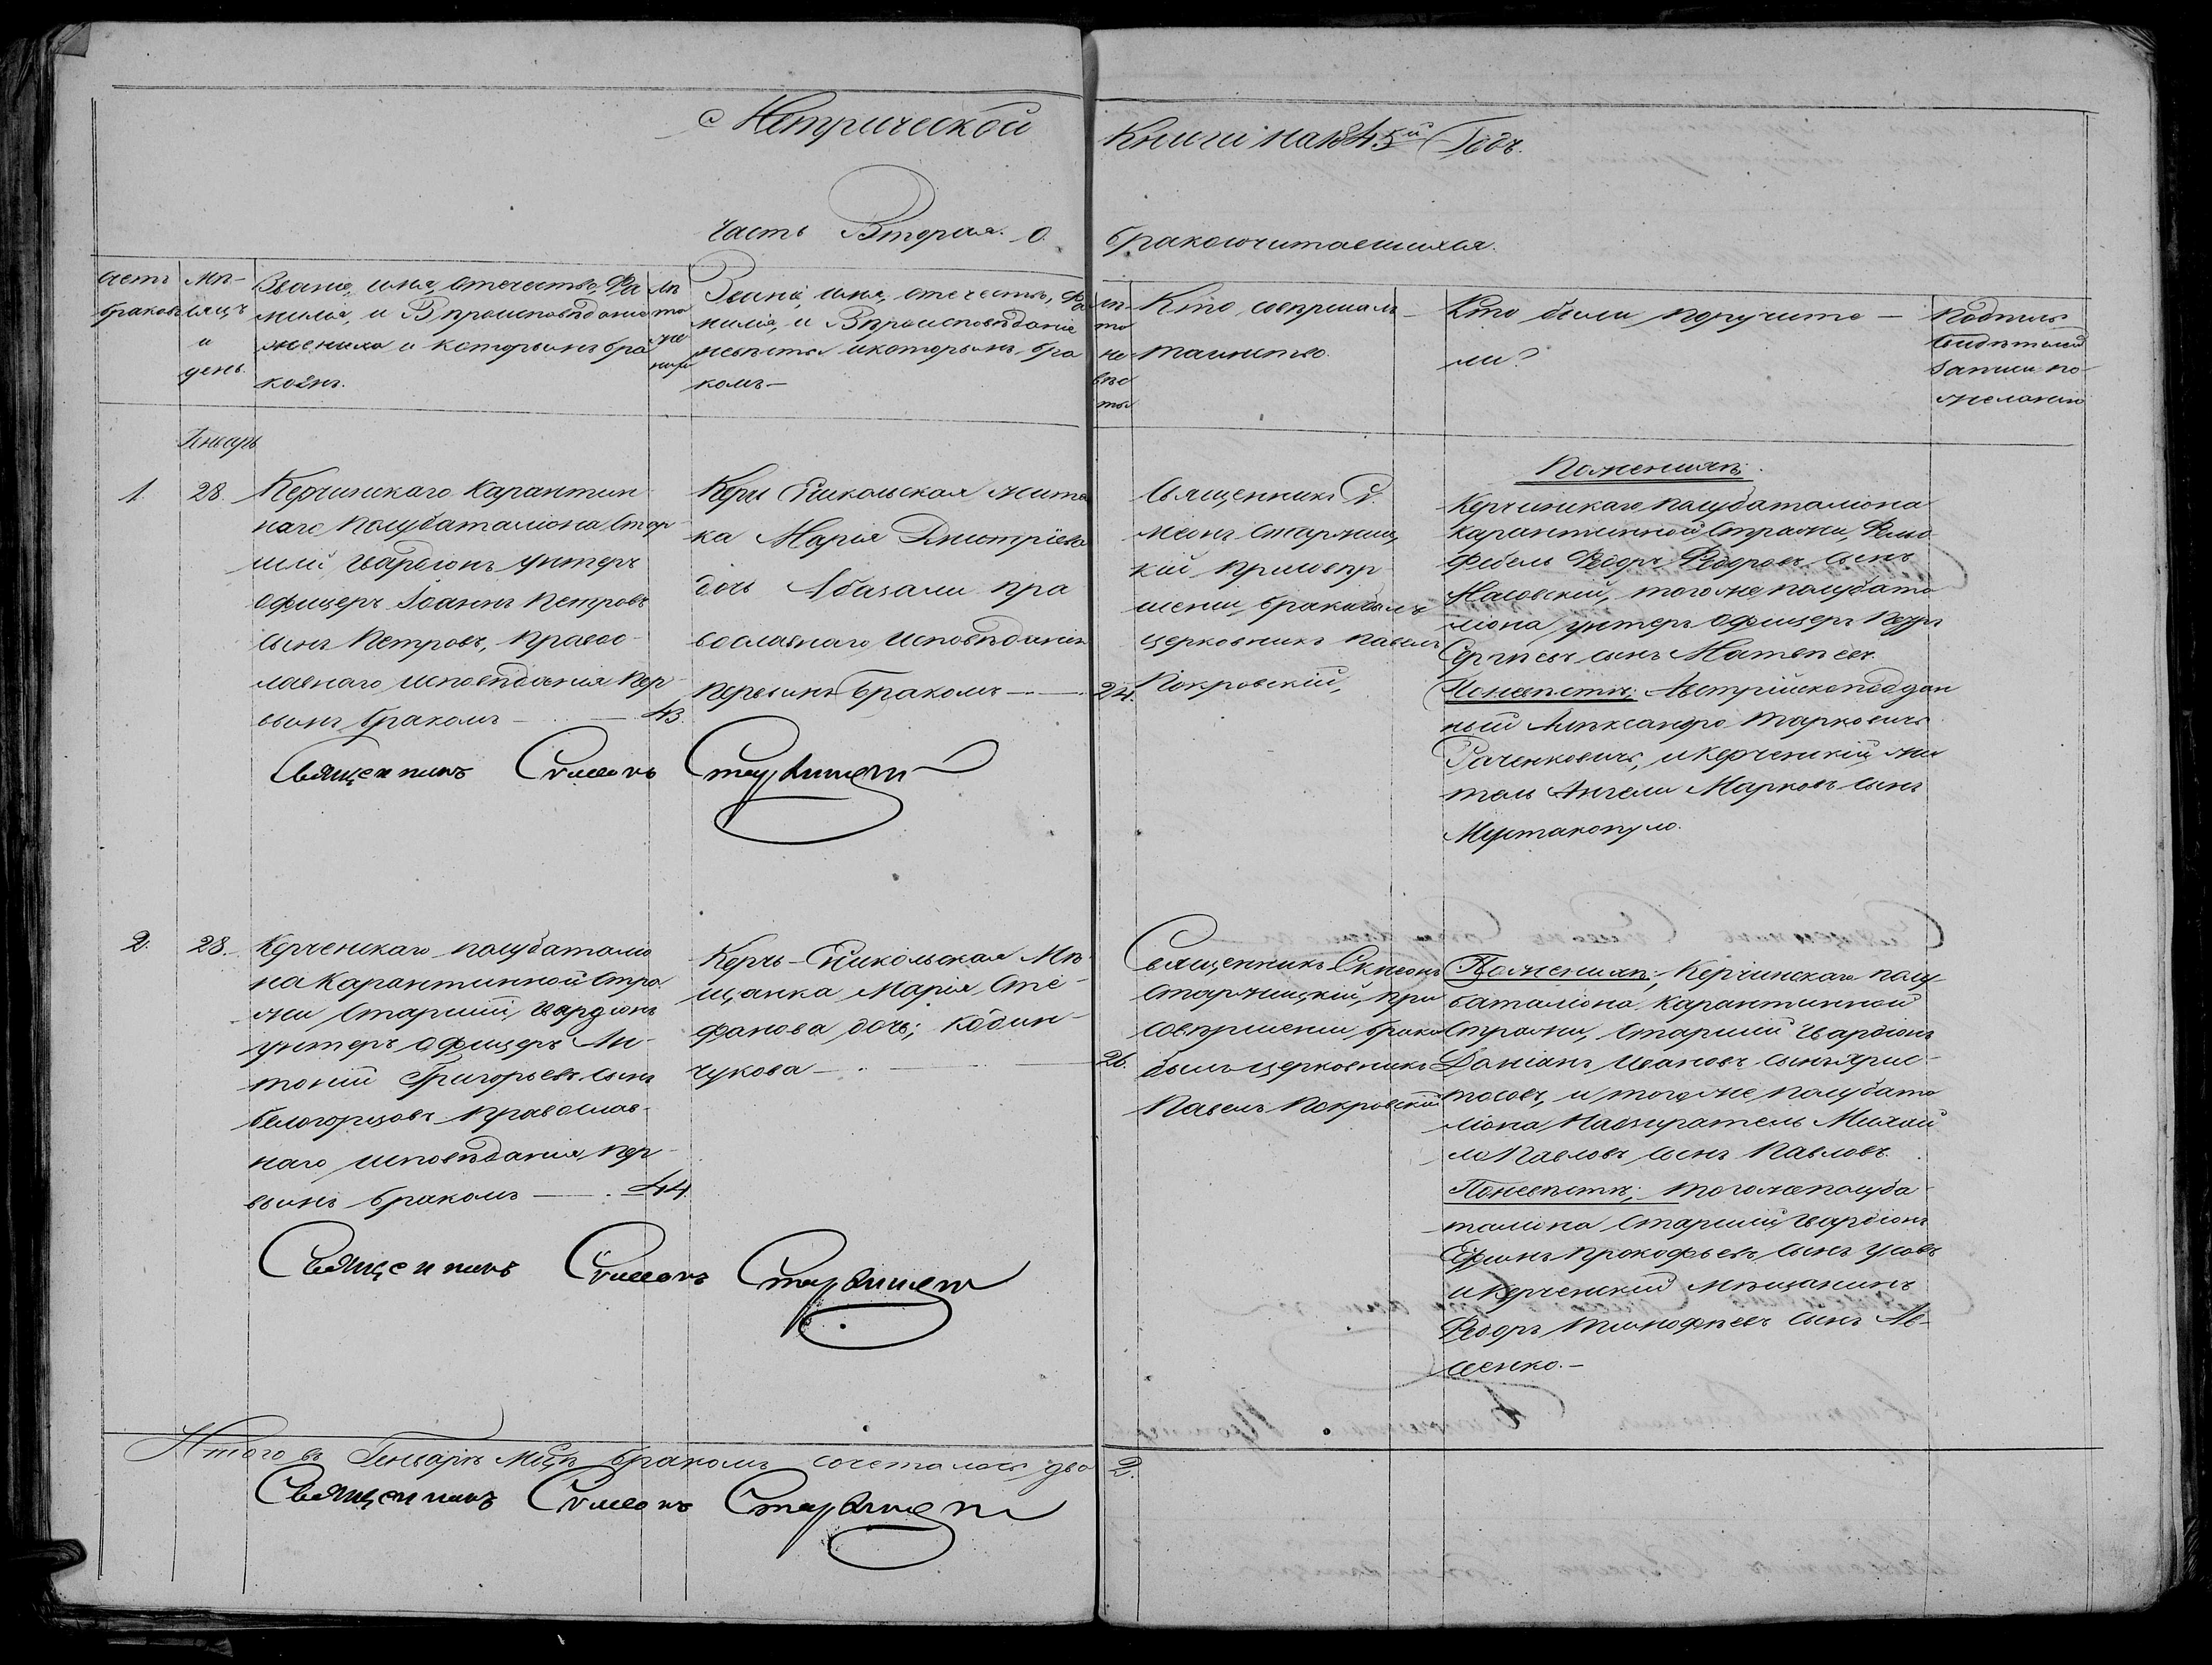 Метрической Книги на 1845й Годъ.
Часть Вторая. О бракосочитавшихся.
Счетъ браковъ
Мѣ-
сяцъ
и
день.
Званіе, имя, отечество, Фа
милія, и Вѣроисповѣданіе
жениха и которымъ бра
комъ.
Лѣ
та
же
ниха
Званіе, имя, отечество, Фа
милія, и Вѣроисповѣданіе
невѣсты и которымъ бра
комъ—
лѣ-
та
не
вѣс
ты
Кто совершалъ
таинство.
Кто были поручите—
ли?
Подпись
свидѣтелей
записи по
желанію
Январь
1.
28.
Керчинскаго Карантин
наго Полубаталіона Стар
шій Гвардіонъ Унтеръ
Офицеръ Іоаннъ Петровъ
сынъ Петровъ, Правос
лавнаго исповѣданія пер
вымъ бракомъ — 43.
Керчь Еникольская жите
ка Марія Дмитріева
дочь Абазали пра
вославнаго исповѣданія
первымъ бракомъ —
24.
Священникъ Си
меонъ Старжиц
кій при совер
шеніи брака былъ
церковникъ Павелъ
Покровскій,
По женихѣ;
Керчинскаго полубаталіона
карантинной Стражи, Фелд
фебель Федоръ Федоровъ сынъ
того же полубата
ліона унтеръ офицеръ Петръ
Сергѣевъ сынъ Матвѣевъ.
По невѣстѣ; Австрійскоподдан
ный Александро Марковичъ
Раченковичъ, и Керченскій жи
тель Ангели Марковъ сынъ
Мустакопуло.
Священникъ Симеонъ Старжицкій
2.
28.
Керченскаго полубаталіо
на Карантинной Стра
жи Старшій Гвардіонъ
унтеръ офицеръ Ан
тоній Григорьевъ сынъ
Белогорцовъ Православ-
наго исповѣданія, пер
вымъ бракомъ — 44.
Керчь-Еникольская Мѣ
щанка Марія Сте-
фанова дочь; Кодин-
чукова —
26.
Священникъ Симеонъ
Старжицкій, при
совершеніи брака
былъ церковникъ
Павелъ Покровскій
По женихѣ; Керчинскаго полу-
баталіона Карантинной
Стражи, Старшій Гвардіонъ
Даміанъ Ивановъ сынъ Хрис-
тосовъ, и того же полубата
ліона Надзиратель Михаи
ло Павловъ сынъ Павловъ.
По невѣстѣ; того же полуба-
таліона Старшій Гвардіонъ
Ефимъ Прокофьевъ сынъ Усовъ
и Керченскій Мѣщанинъ
Федоръ Тимофѣевъ сынъ Ав-
сенко.—
Священникъ Симеонъ Старжицкій
Итого въ Генварѣ Мцѣ бракомъ сочеталось два 2.
Священникъ Симеонъ Старжицкій